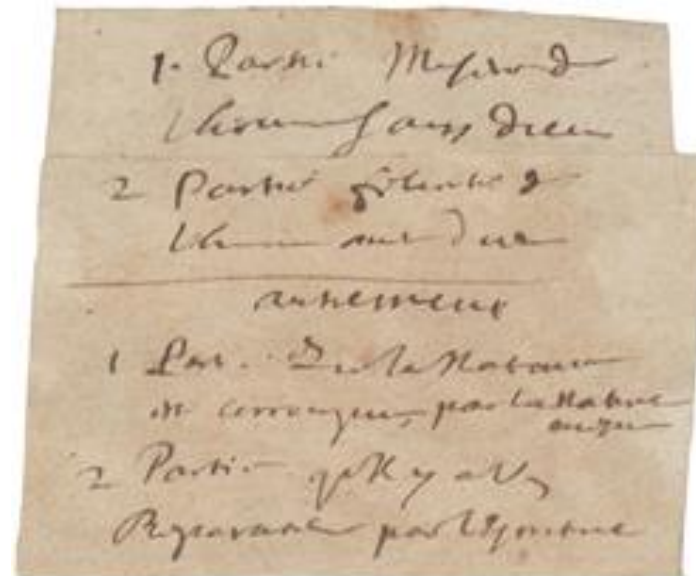 1. Partie Misere de
lhomme sans dieu
2 Partie felicité de
lhomme avec dieu
autrement
1 Part. Que la Nature
est corrompue, par la Nature
mesme
2 Partie quil y a Un
Reparateur par lEscriture